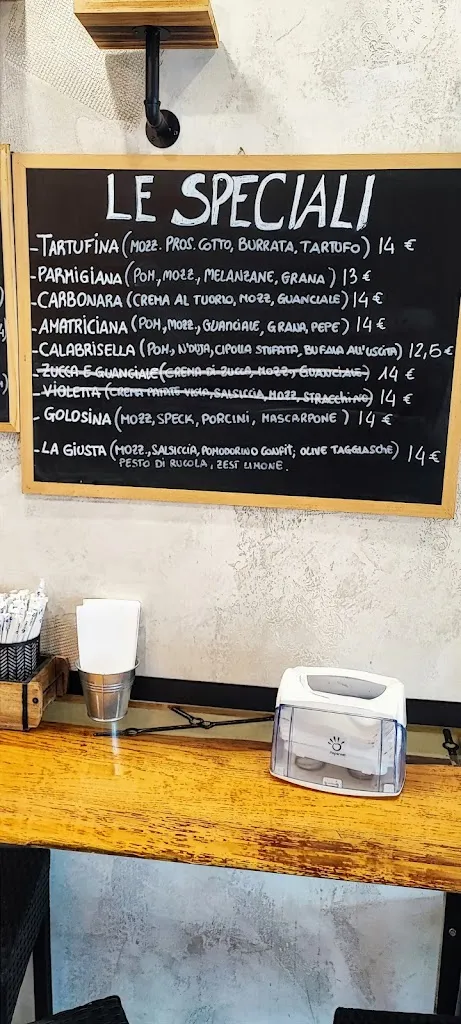 LE SPECIALI
-TARTUFINA (MOZZ. PROS. COTTO, BURRATA, TARTUFO) 14 €
-PARMIGIANA (POM., MOZZ., MELANZANE, GRANA) 13 €
-CARBONARA (CREMA AL TUORLO, MOZZ, GUANCIALE) 14 €
-AMATRICIANA (POM., MOZZ., GUANCIALE, GRANA, PEPE) 14 €
-CALABRISELLA (POM., N'DUJA, CIPOLLA STUFATA, BUFALA ALL'USCITA) 12,5 €
-ZUCCA E GUANCIALE (CREMA DI ZUCCA, MOZZ., GUANCIALE) 14 €
-VIOLETTA (CREMA PATATE VIOLA, SALSICCIA, MOZZ, STRACCHINO) 14 €
-GOLOSINA (MOZZ, SPECK, PORCINI, MASCARPONE) 14 €
-LA GIUSTA (MOZZ., SALSICCIA, POMODORINO CONFIT, OLIVE TAGGIASCHE) 14 €
PESTO DI RUCOLA, ZEST LIMONE.